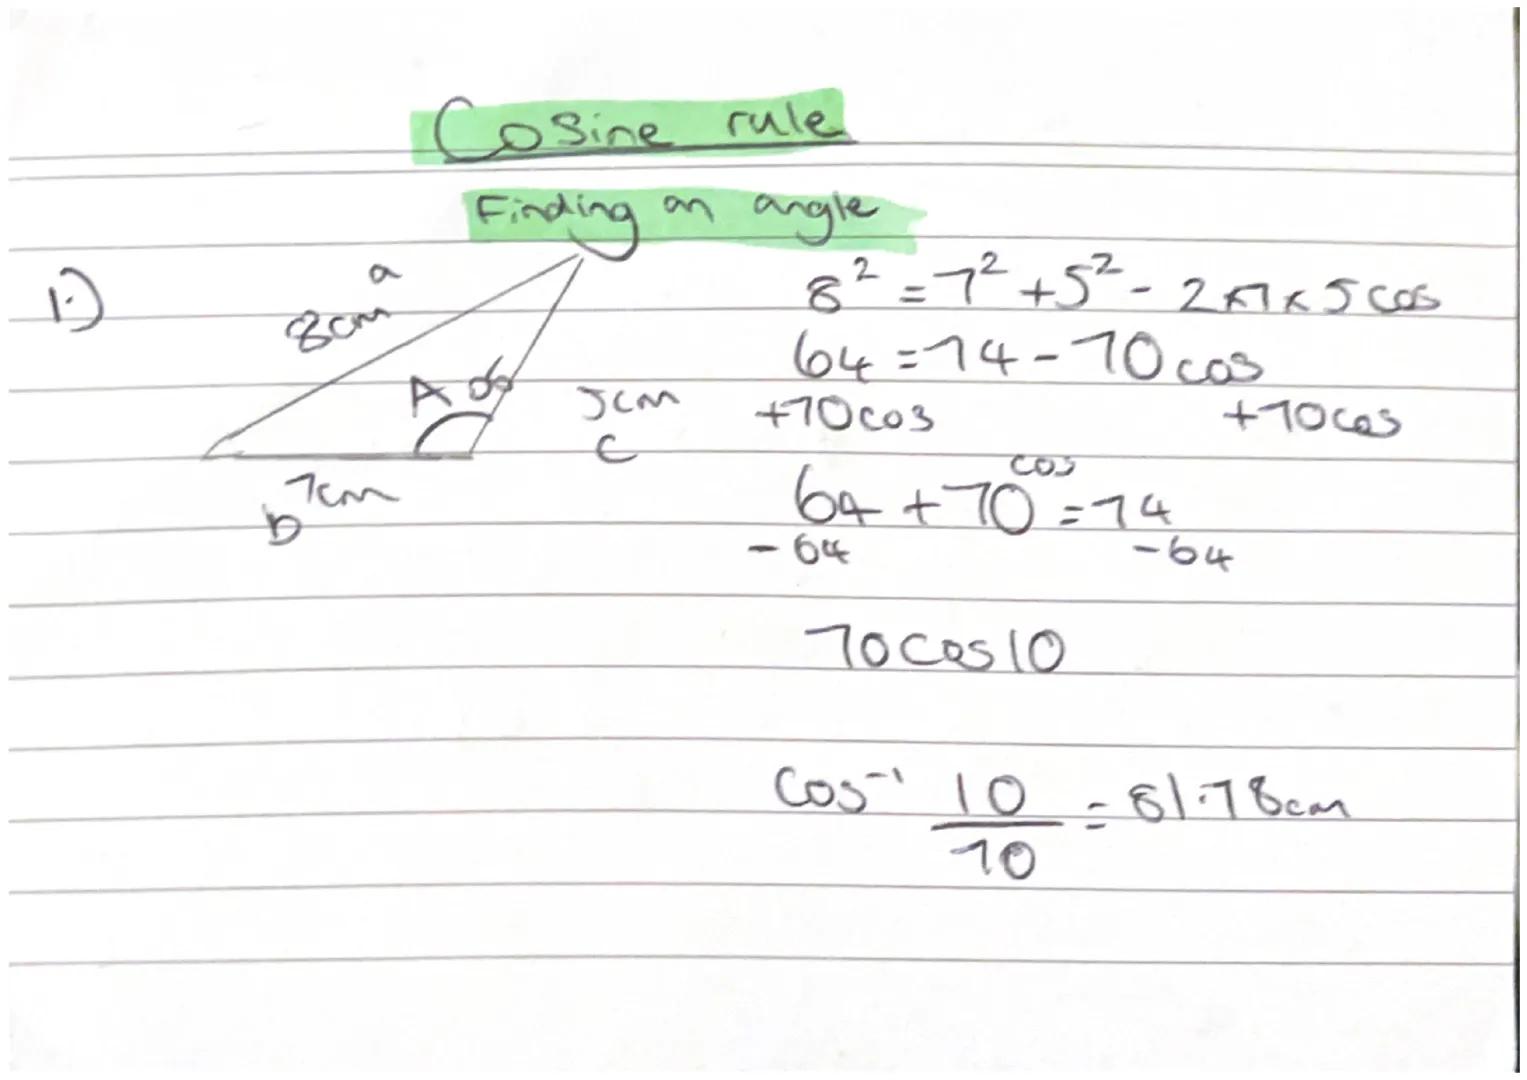 Cosine rule
Finding an angle
1.)
a
8cm
A
5cm
c
7cm
b
8² = 7² + 5² - 2×7×5 cos
64 = 74 - 70 cos
+70cos +70cos
64 + 70 cos = 74
-64 -64
70cos10
cos⁻¹ 10/70 = 81.78cm